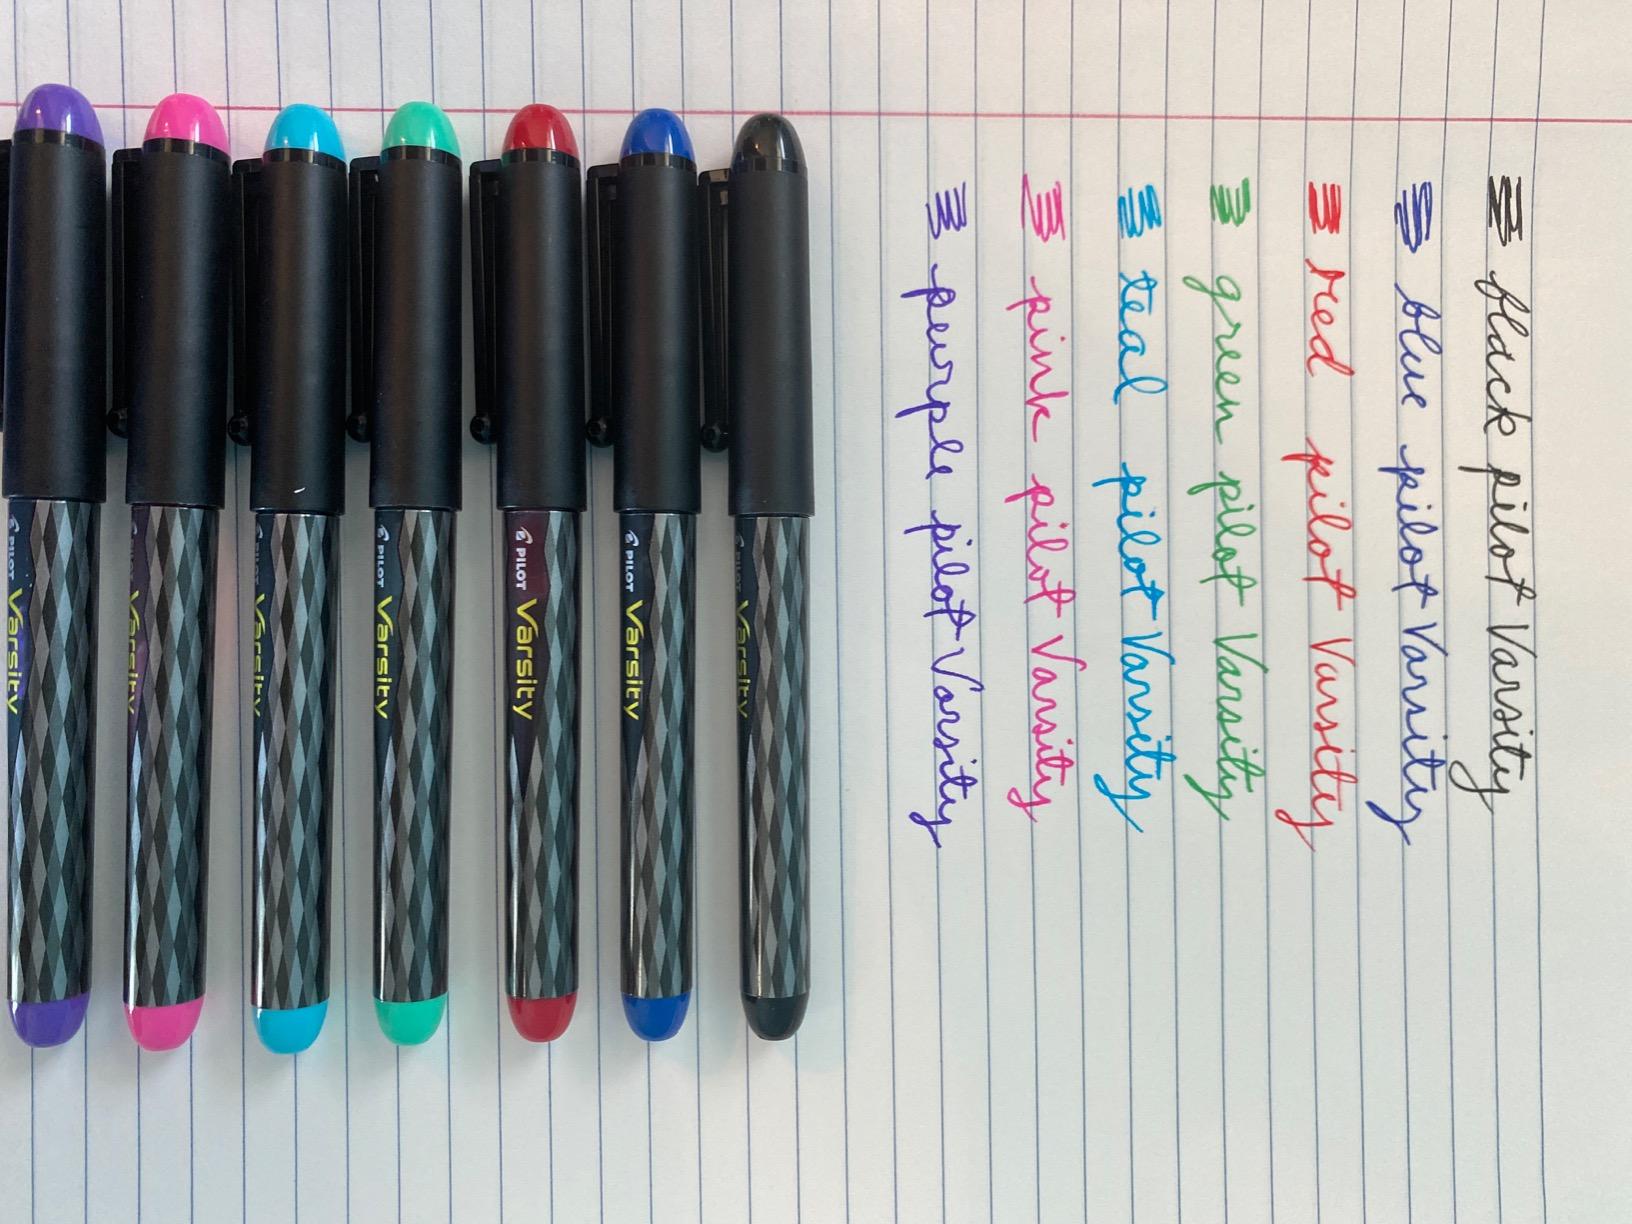 black pilot Varsity
blue pilot Varsity
red pilot Varsity
green pilot Varsity
teal pilot Varsity
pink pilot Varsity
purple pilot Varsity
PILOT Varsity
PILOT Varsity
PILOT Varsity
PILOT Varsity
PILOT Varsity
PILOT Varsity
PILOT Varsity